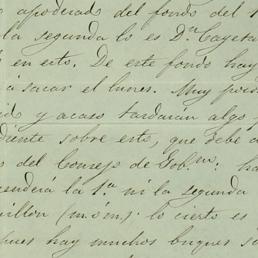 apoderado del fondo del 1
la segunda lo es D.ª Cayeta
en esto. De este fondo hay
á sacar el lunes. Muy
y acaso tardarán algo
diente sobre esto, que debe
del Consejo de Gob.no: ha
tenderá la 1.ª ni la segunda
illón (m.ó m.): lo cierto es
pues hay muchos buques